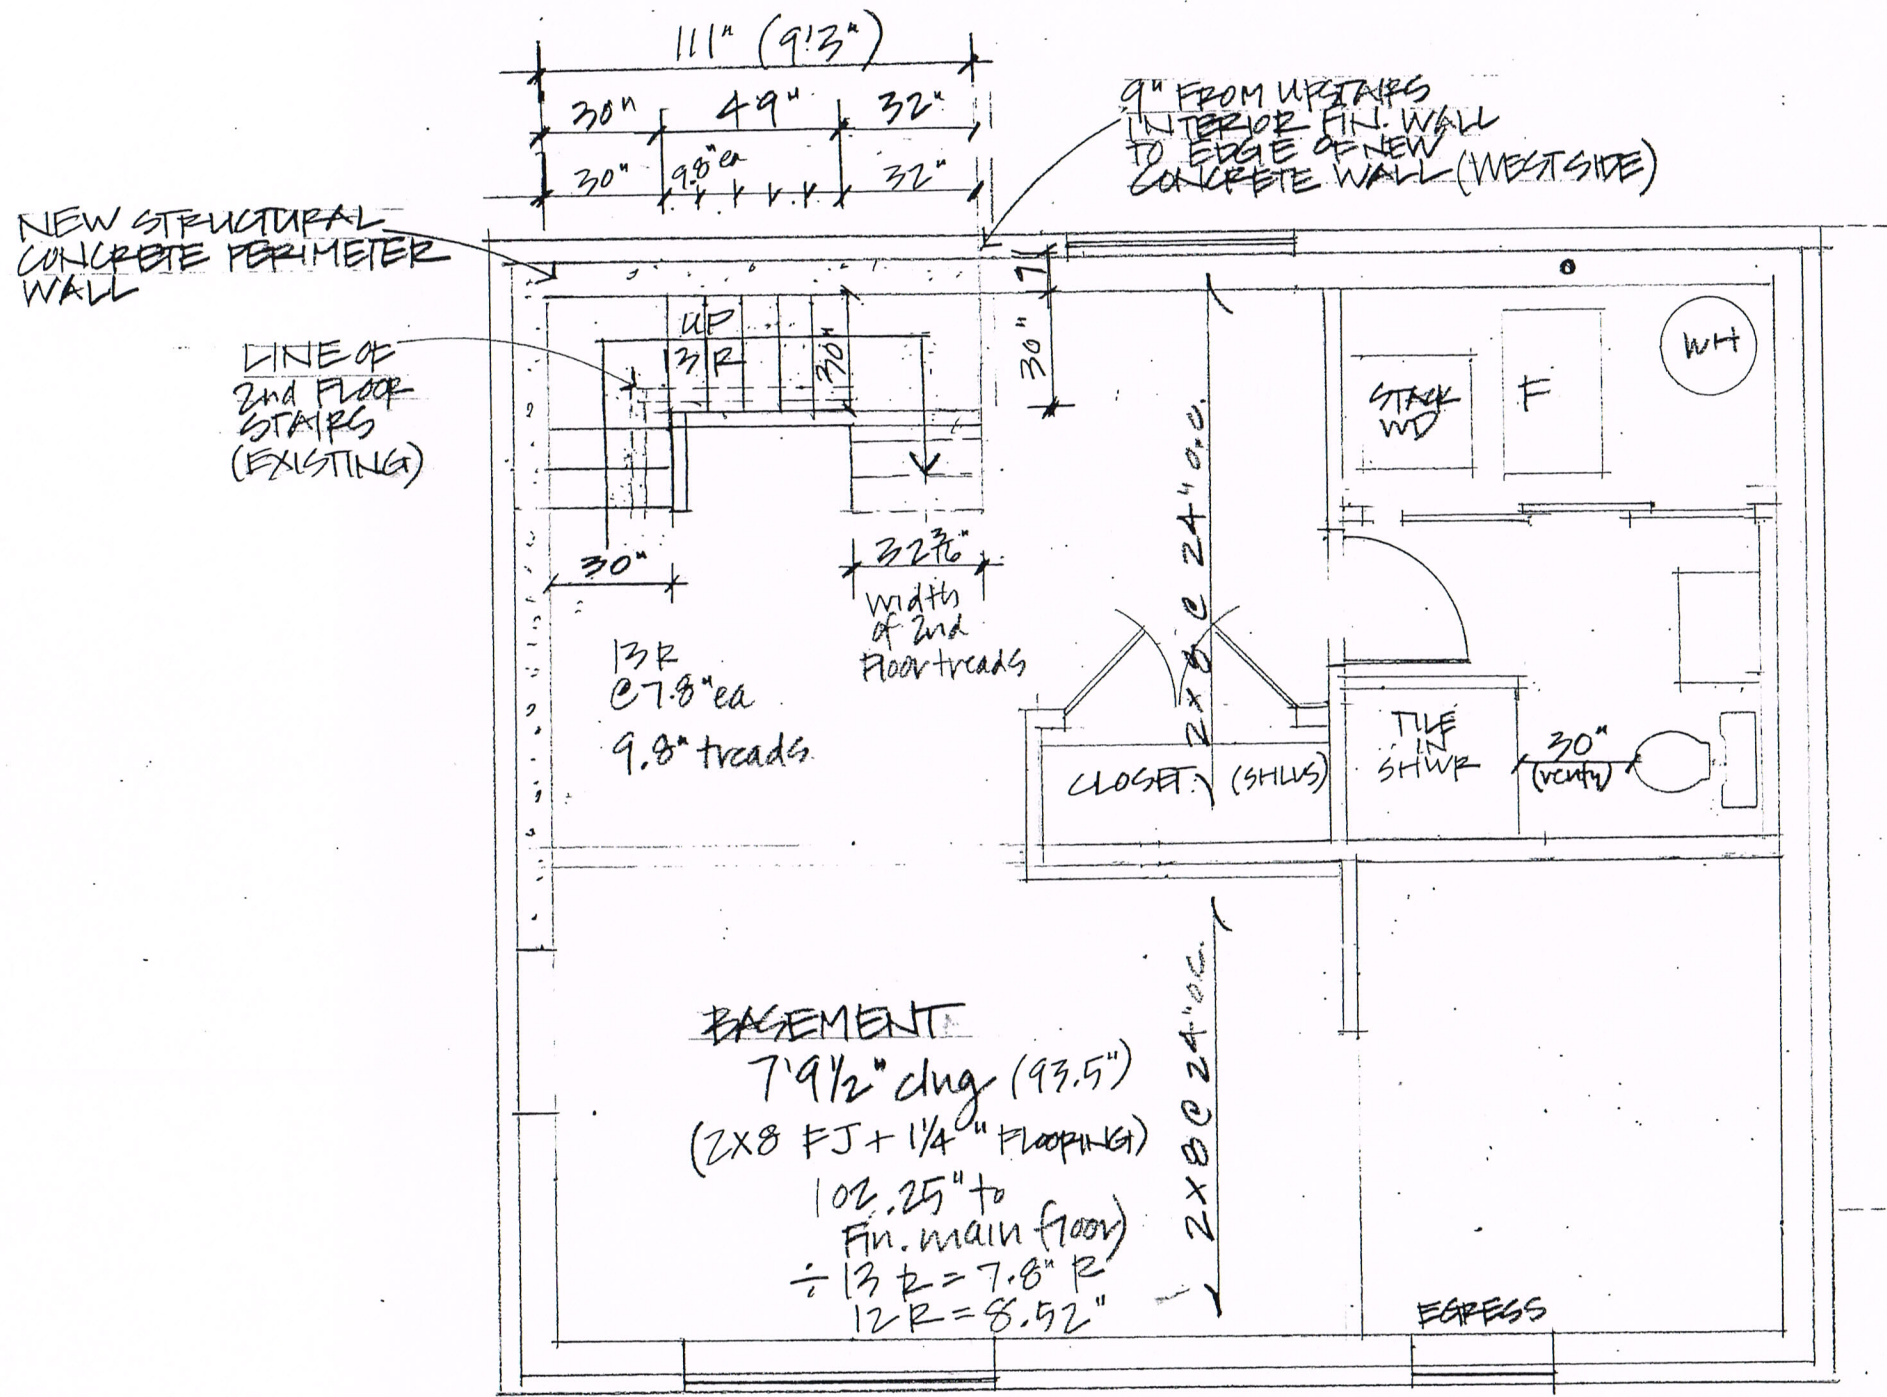 111" (9'3")
30" 49" 32"
30" 9.8"ea 32"
9" FROM UPSTAIRS
INTERIOR FIN. WALL
TO EDGE OF NEW
CONCRETE WALL (WEST SIDE)
NEW STRUCTURAL
CONCRETE PERIMETER
WALL
LINE OF
2nd FLOOR
STAIRS
(EXISTING)
UP
3 R
30"
30"
2x8 @ 24" o.c.
STACK
WD
F
WH
30"
32 3/16"
width
of 2nd
Floor treads
13 R
@ 7.8" ea
9.8" treads
CLOSET. (SHLVS)
TILE
IN
SHWR
30"
BASEMENT
7'9 1/2" clng (93.5")
(2x8 FJ + 1 1/4" FLOORING)
102.25" to
Fin. main floor)
÷ 13 R = 7.8" R
12 R = 8.52"
2x8 @ 24" o.c.
EGRESS